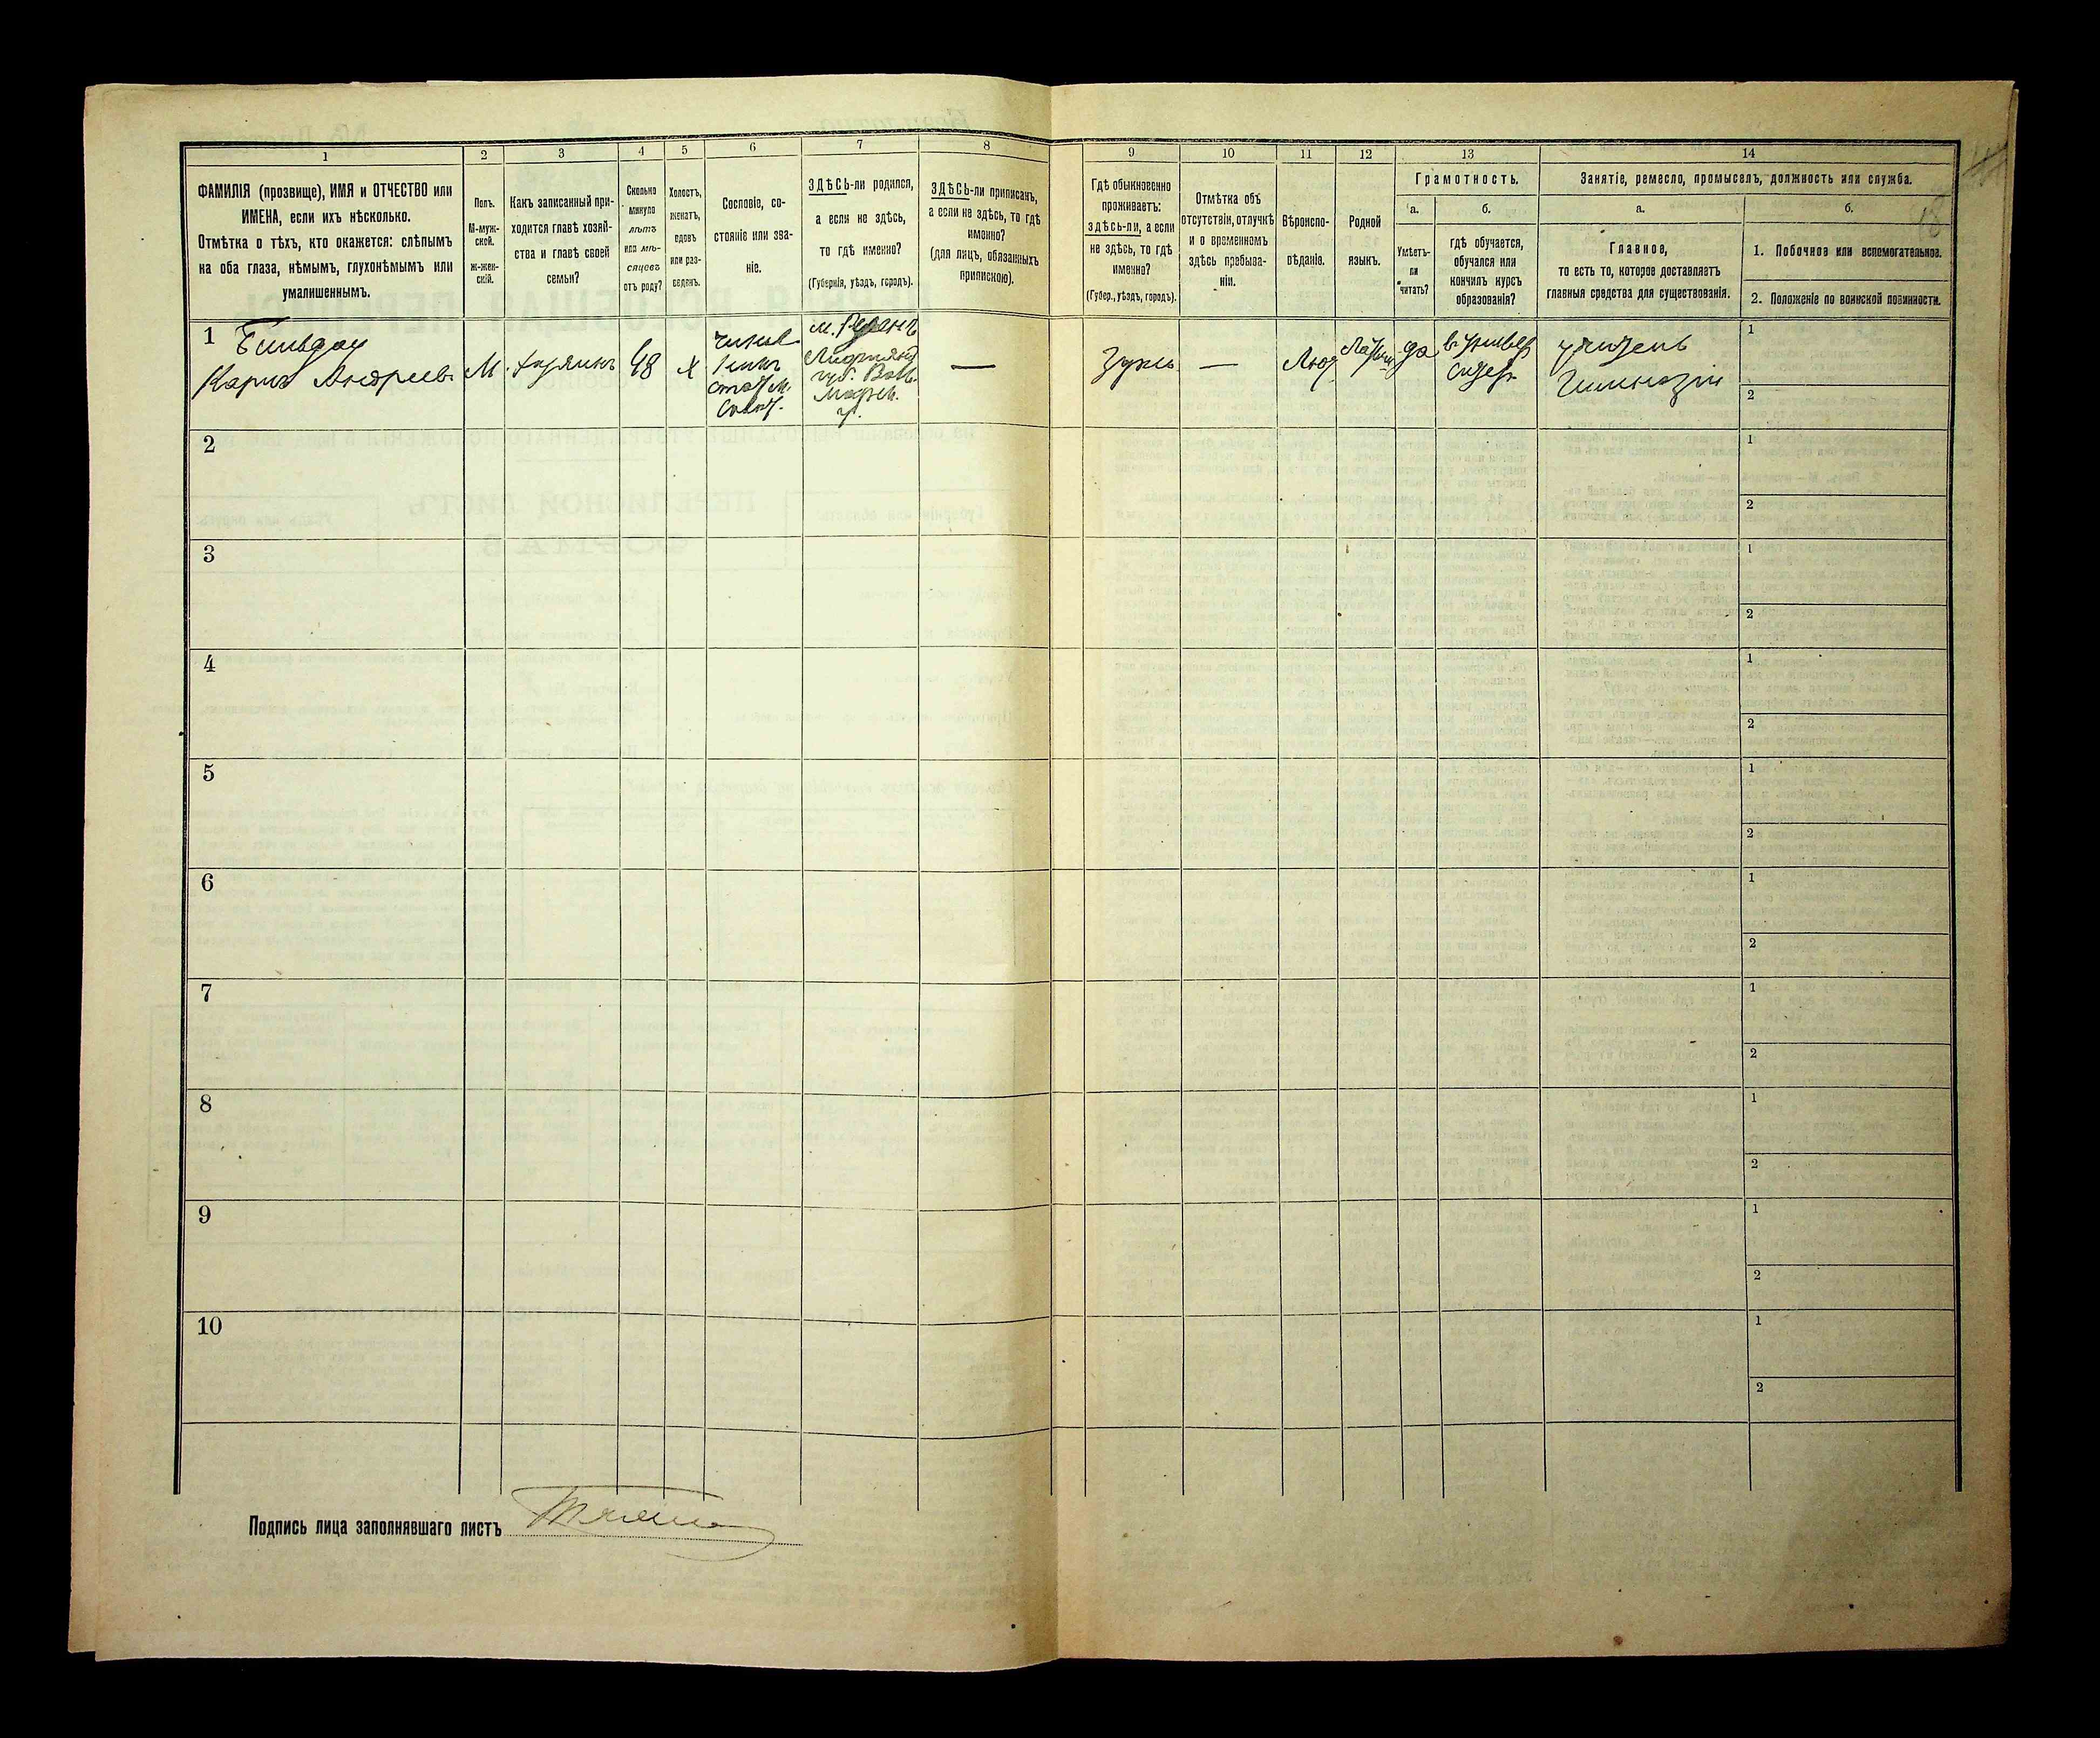 1
2
3
4
5
6
7
8
ФАМИЛІЯ (прозвище), ИМЯ и ОТЧЕСТВО или
ИМЕНА, если ихъ нѣсколько.
Отмѣтка о тѣхъ, кто окажется: слѣпымъ
на оба глаза, нѣмымъ, глухонѣмымъ или
умалишеннымъ.
Полъ.
М-муж-
ской.
Ж-жен-
скій.
Какъ записанный при-
ходится главѣ хозяй-
ства и главѣ своей
семьи?
Сколько
минуло
лѣтъ
или мѣ-
сяцевъ
отъ роду?
Холостъ,
женатъ,
вдовъ
или раз-
веденъ.
Сословіе, со-
стояніе или зва-
ніе.
ЗДѢСЬ-ли родился,
а если не здѣсь,
то гдѣ именно?
(Губернія, уѣздъ, городъ).
ЗДѢСЬ-ли приписанъ,
а если не здѣсь, то гдѣ
именно?
(для лицъ, обязанныхъ
припискою).
9
10
11
12
13
14
Гдѣ обыкновенно
проживаетъ:
здѣсь-ли, а если
не здѣсь, то гдѣ
именно?
(Губер., уѣздъ, городъ).
Отмѣтка объ
отсутствіи, отлучкѣ
и о временномъ
здѣсь пребыва-
ніи.
Вѣроиспо-
вѣданіе.
Родной
языкъ.
Грамотность.
а.
б.
Умѣетъ-
ли
читать?
гдѣ обучается,
обучался или
кончилъ курсъ
образованія?
Занятіе, ремесло, промыселъ, должность или служба.
а.
б.
Главное,
то есть то, которое доставляетъ
главныя средства для существованія.
1. Побочное или вспомогательное.
2. Положеніе по воинской повинности.
18
1
Карлъ Андреев.
М.
48
Х
—
—
Лют.
да
учитель
Гимназіи
1
2
2
1
2
3
1
2
4
1
2
5
1
2
6
1
2
7
1
2
8
1
2
9
1
2
10
1
2
Подпись лица заполнявшаго листъ